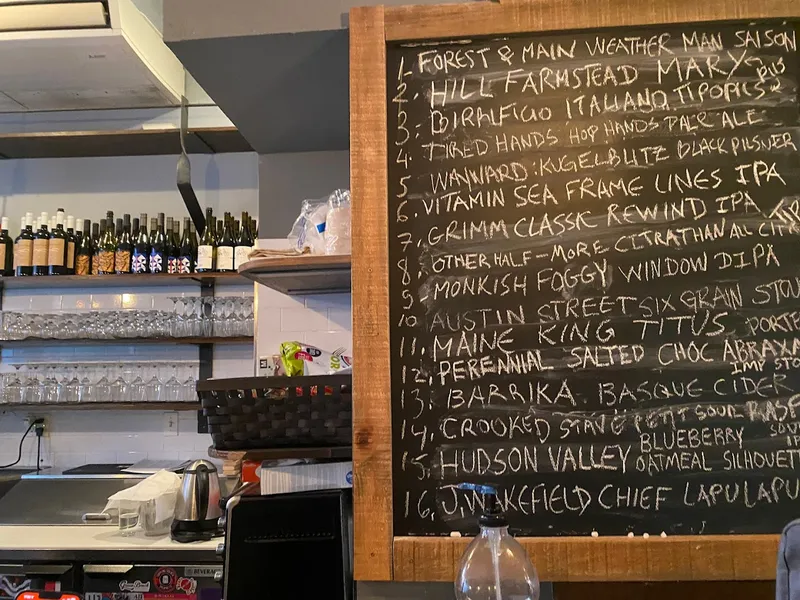 1. FOREST & MAIN WEATHER MAN SAISON
2. HILL FARMSTEAD MARY
3. BIRRIFICIO ITALIANO TIPOPILS
4. TIRED HANDS HOP HANDS PALE ALE
5. WAYWARD: KUGELBLITZ BLACK PILSNER
6. VITAMIN SEA FRAME LINES IPA
7. GRIMM CLASSIC REWIND IPA
8. OTHER HALF - MORE CITRA THAN ALL CIT
9. MONKISH FOGGY WINDOW DIPA
10. AUSTIN STREET SIX GRAIN STOU
11. MAINE KING TITUS PORTE
12. PERENNIAL SALTED CHOC ABRAXA
IMP STO
13. BARRIKA BASQUE CIDER
14. CROOKED STAVE PETIT SOUR RASP
15. HUDSON VALLEY BLUEBERRY SOUR
OATMEAL SILHOUETT
16. J. WAKEFIELD CHIEF LAPU LAPU